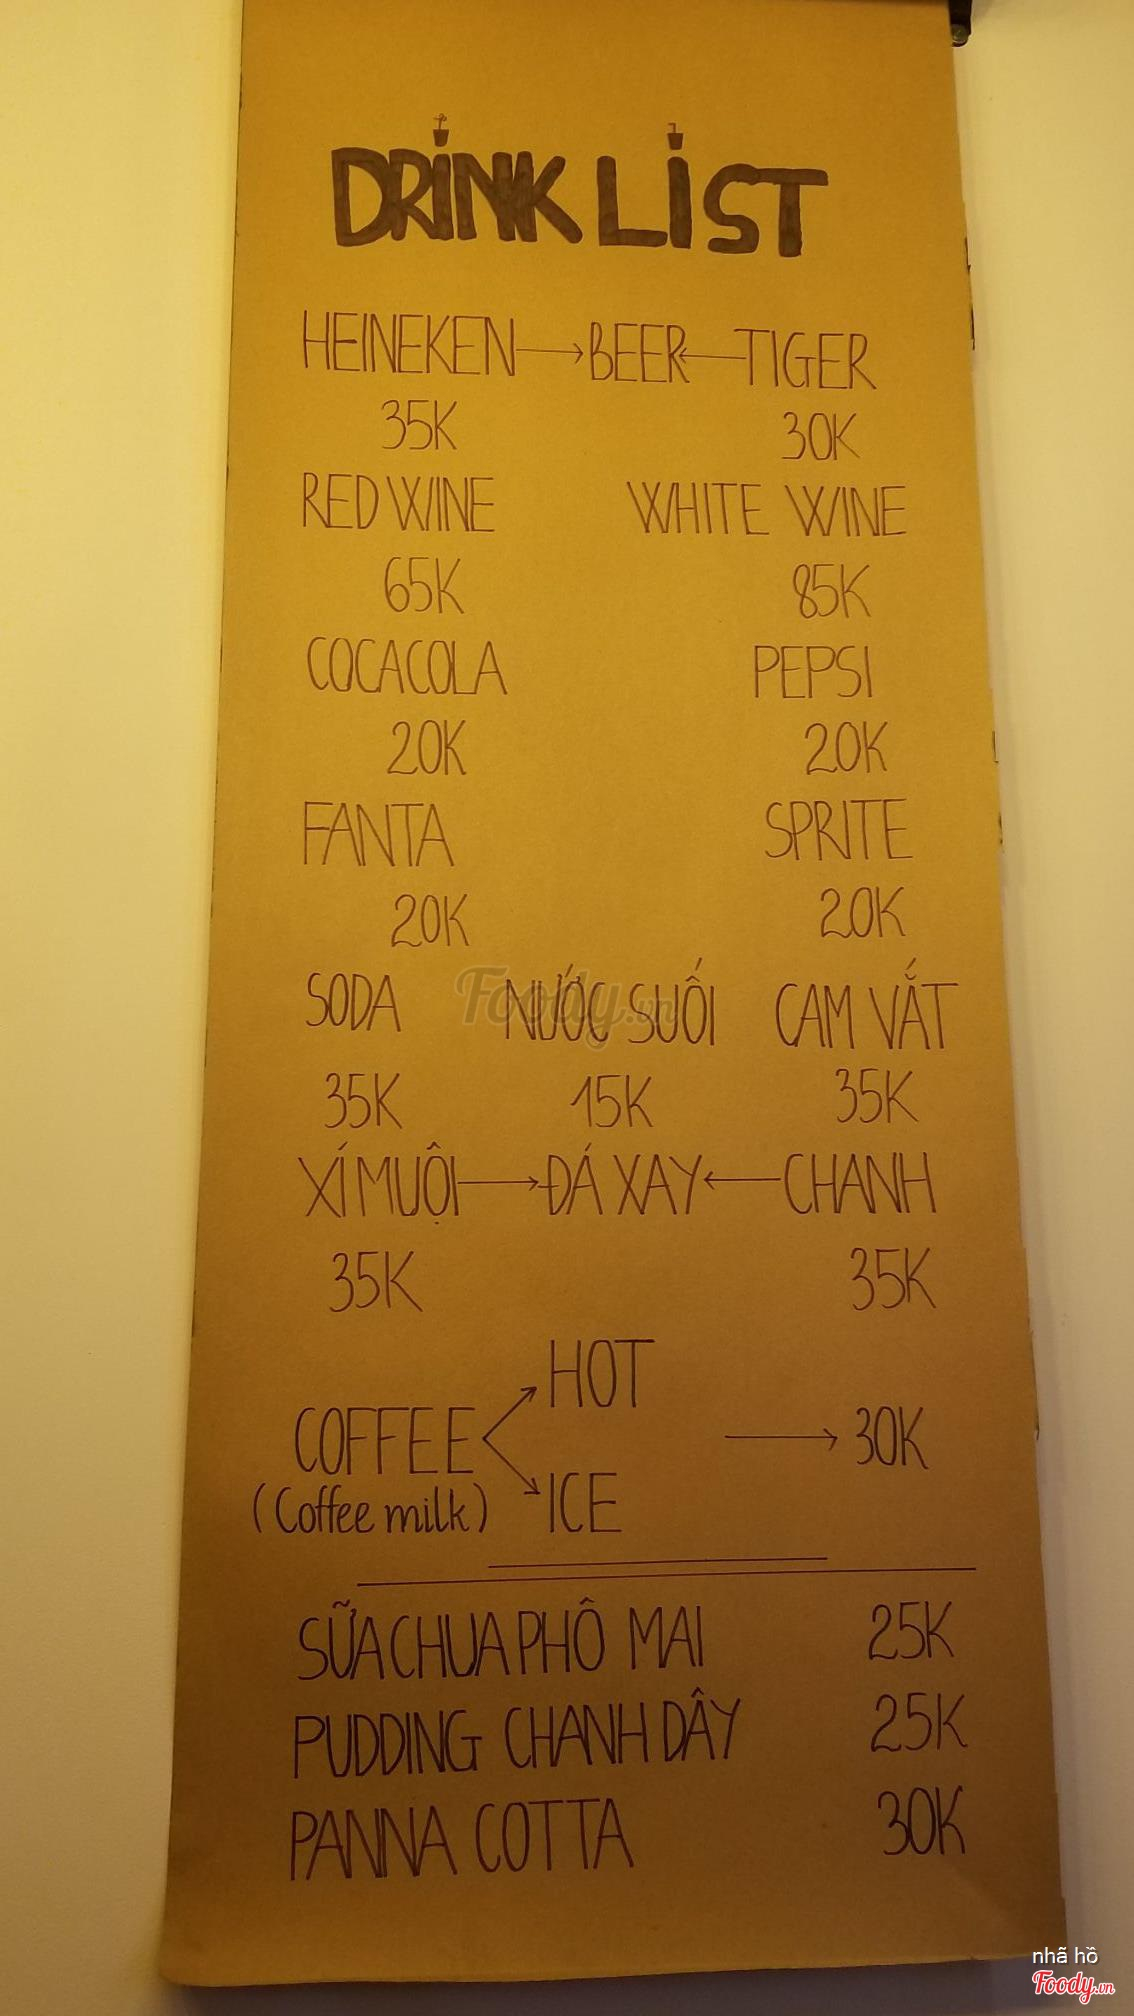 DRINK LIST
HEINEKEN → BEER ← TIGER
35K 30K
RED WINE WHITE WINE
65K 85K
COCACOLA PEPSI
20K 20K
FANTA SPRITE
20K 20K
SODA NƯỚC SUỐI CAM VẮT
35K 15K 35K
XÍ MUỘI → ĐÁ XAY ← CHANH
35K 35K
HOT
COFFEE → 30K
(Coffee milk) ICE
SỮA CHUA PHÔ MAI 25K
PUDDING CHANH DÂY 25K
PANNA COTTA 30K
Foody.vn
nhã hồ
Foody.vn